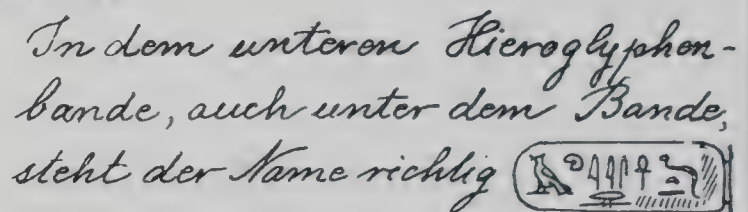 In dem unteren Hieroglyphen-
bande, auch unter dem Bande,
steht der Name richtig